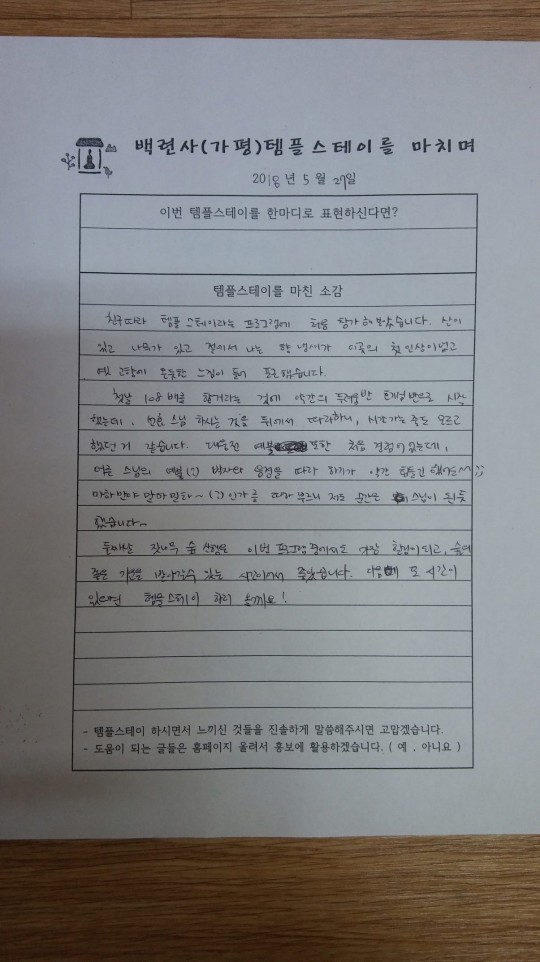 백련사(가평)템플스테이를 마치며
2018년 5월 27일
이번 템플스테이를 한마디로 표현하신다면?
템플스테이를 마친 소감
친구따라 템플스테이라는 프로그램에 처음 참가해보았습니다. 산이
있고 나무가 있고 절에서 나는 향 냄새가 이곳의 첫 인상이었고
옛 고향에 온듯한 느낌이 들어 포근했습니다.
첫날 108배를 한다는 것에 약간의 두려움반 설렘반으로 시작
했는데, 스님 하시는 것을 뒤에서 따라하니, 시간가는 줄도 모르고
했던거 같습니다. 대웅전 예불 또한 처음 경험이였는데,
스님의 예불(?) 박자와 음정을 따라 하기가 약간 힘들긴 했어도^^;;
마하반야 바라밀다~ (?)인가를 따라 부르니 저도 순간은 스님이 된듯
했습니다~
둘째날 잣나무 숲 산행은 이번 프로그램중에서도 가장 힐링이되고, 숲에
좋은 기운을 받아갈수 있는 시간이여서 좋았습니다. 다음에 또 시간이
있으면 템플스테이 하러 올께요!
- 템플스테이 하시면서 느끼신 것들을 진솔하게 말씀해주시면 고맙겠습니다.
- 도움이 되는 글들은 홈페이지 올려서 홍보에 활용하겠습니다. ( 예 , 아니요 )